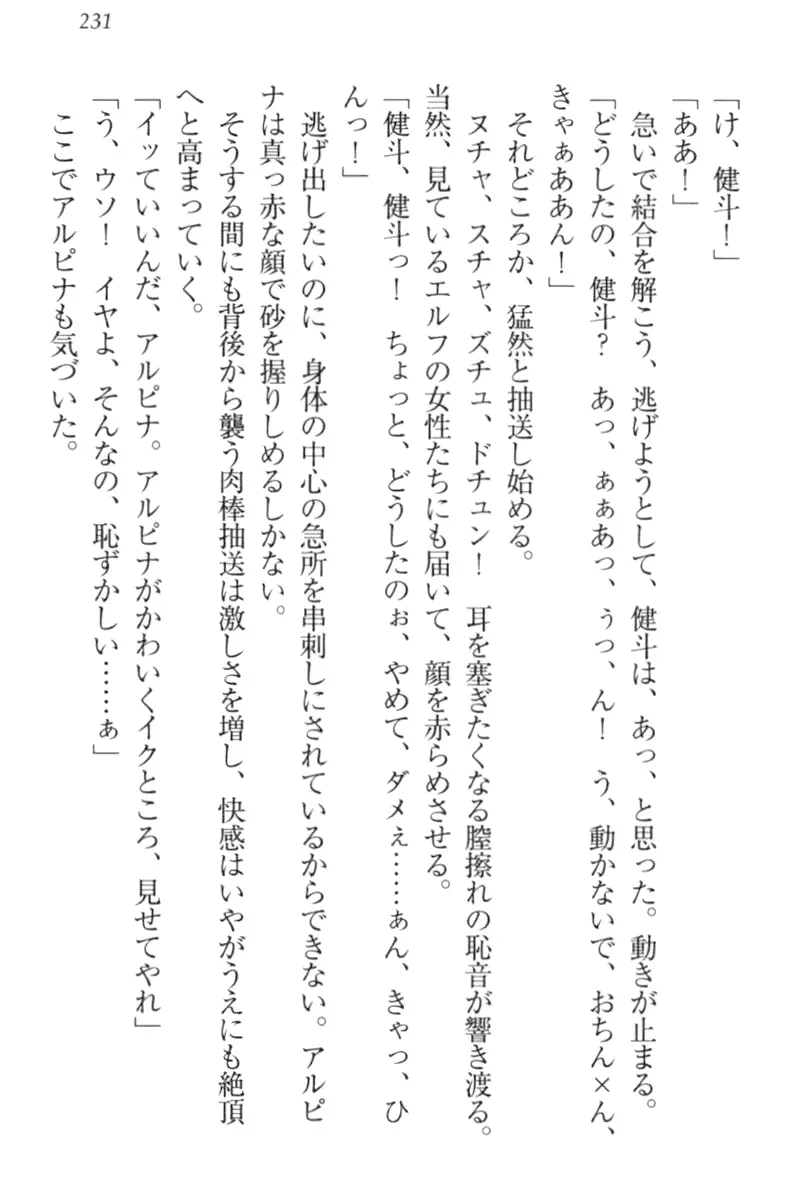 231
「け、健斗！」
「ああ！」
急いで結合を解こう、逃げようとして、健斗は、あっ、と思った。動きが止まる。
「どうしたの、健斗？　あっ、ぁぁあっ、ぅっ、ん！　う、動かないで、おちん×ん、
きゃぁああん！」
それどころか、猛然と抽送し始める。
ヌチャ、スチャ、ズチュ、ドチュン！　耳を塞ぎたくなる膣擦れの恥音が響き渡る。
当然、見ているエルフの女性たちにも届いて、顔を赤らめさせる。
「健斗、健斗っ！　ちょっと、どうしたのぉ、やめて、ダメぇ……ぁん、きゃっ、ひ
んっ！」
逃げ出したいのに、身体の中心の急所を串刺しにされているからできない。アルピ
ナは真っ赤な顔で砂を握りしめるしかない。
そうする間にも背後から襲う肉棒抽送は激しさを増し、快感はいやがうえにも絶頂
へと高まっていく。
「イッていいんだ、アルピナ。アルピナがかわいくイクところ、見せてやれ」
「う、ウソ！　イヤよ、そんなの、恥ずかしい……ぁ」
ここでアルピナも気づいた。